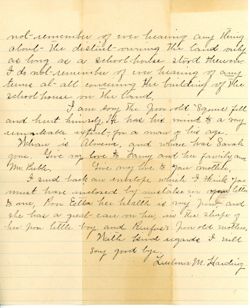 not remember of ever hearing any thing
about the district owning the land only
as long as a school house stood thereon
I do not remember of ever hearing of any
time at all concerning the building of the
school house on the land,
I am sorry the Jon old Squire fell
and hurt himself, He has his mind to a very
remarkable extent for a man of his age.
Where is Almena, and where has Sarah
gone. Give my love to Fanny and her family and
Mr. Give my love to your mother.
I send back an envelope which I think you
must have enclosed by mistake in your letter
to me, Ella her health is very and
she has a great care on her, in the shape of
her little boy and Rufus' old mother,
With kind regards I will
say good bye.
M. Harding